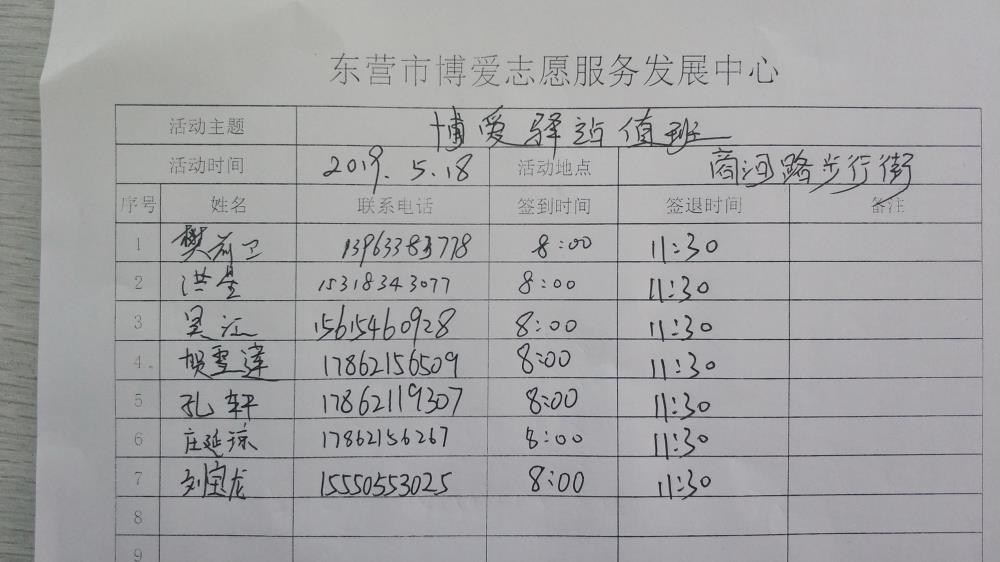 东营市博爱志愿服务发展中心
活动主题 博爱驿站值班
活动时间 2019.5.18 活动地点 商河路步行街
序号 姓名 联系电话 签到时间 签退时间 备注
1 樊前卫 13963383778 8:00 11:30
2 洪星 15318343077 8:00 11:30
3 吴江 15615460928 8:00 11:30
4 贺圣達 17862156509 8:00 11:30
5 孔轩 17862119307 8:00 11:30
6 庄延琼 17862156267 8:00 11:30
7 刘宝龙 15550553025 8:00 11:30
8
9